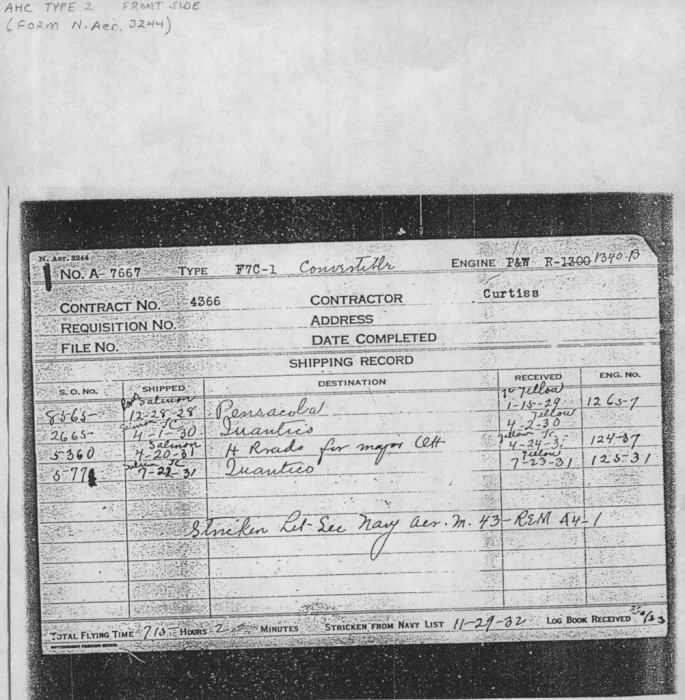 AHC TYPE 2 FRONT SIDE
(FORM N. Aer. 3244)
N. Aer. 3244
NO. A- 7667 TYPE F7C-1 Convertible ENGINE P&W R-1300 1340-B
CONTRACT NO. 4366 CONTRACTOR Curtiss
REQUISITION NO. ADDRESS
FILE NO. DATE COMPLETED
SHIPPING RECORD
S.O. NO. SHIPPED DESTINATION RECEIVED ENG. NO.
Salmon Yellow
8565- 12-28-28 Pensacola 1-15-29 1265-7
Yellow
2665- 4-1-30 Quantico 4-2-30
Salmon
5360 4-20-31 H Roads for major O/H 4-24-31 124-37
Yellow
577 7-22-31 Quantico 7-23-31 125-31
Stricken Let-Sec Navy Aer. M. 43-REM A4-1
TOTAL FLYING TIME 715 HOURS 2 MINUTES STRICKEN FROM NAVY LIST 11-29-32 LOG BOOK RECEIVED
GOVERNMENT PRINTING OFFICE